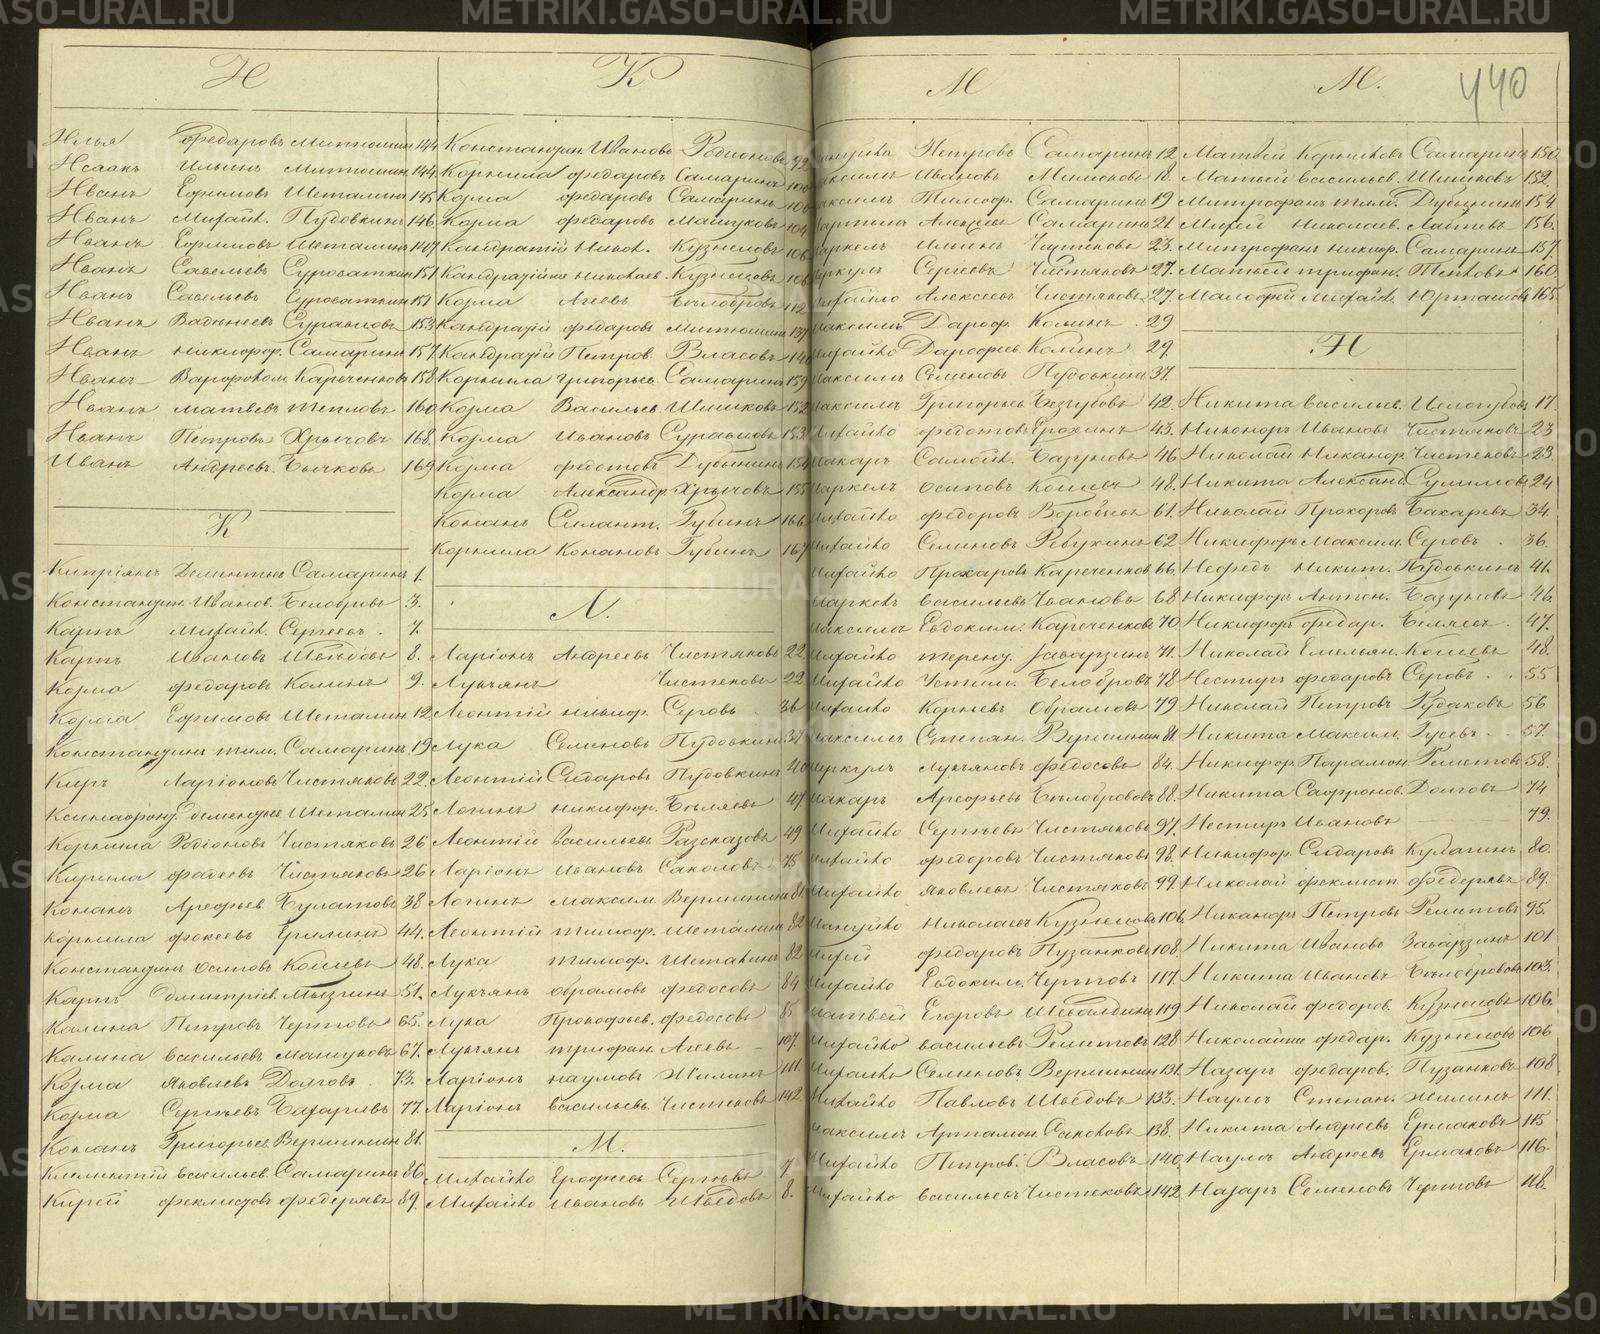 440
И
Илья Федаровъ Митюшин 144
Исаакъ Ильинъ Митюшин 144
Иванъ Ефимовъ Шеталин 145
Иванъ Михайл. Пудовкинъ 146
Иванъ Ефимовъ Шеталин 147
Иванъ Савельевъ Суроваткин 151
Иванъ Савельевъ Суроваткин 151
Иванъ 153
Иванъ Никифор. Самаринъ 157
Иванъ Варфолом. Кареченковъ 158
Иванъ Матвевъ Тепловъ 160
Иванъ Петровъ Хрычовъ 168
Иванъ Андреевъ Бычковъ 169
К
Кипріянъ Дементьев Самаринъ 1.
Констандин. Иванов. Белобровъ 3.
Карпъ Михайл. Сергеевъ. 7.
Карпъ Ивановъ Шведовъ 8.
Козма Федаровъ Коминъ 9.
Козма Ефимовъ Шеталин 12
Констандинъ Тим. Самаринъ 19
Киръ Ларіоновъ Чистяковъ 22.
Дементьев Шеталин 25
Корнила Родіоновъ Чистяковъ 26
Кирила Фадеевъ Чистяковъ 26
Конанъ Арефьев. Булатовъ 38
Корнила Фокеевъ 44.
Констандинъ Осиповъ Кошевъ 48.
Карпъ Дмитріев. Мызгинъ 51.
Калина Петровъ Чертовъ 65.
Калина Васильевъ Машуковъ 67.
Козма Яковлевъ Долговъ. 73.
Козма Сергѣевъ Бахаревъ 77.
Конанъ Григорьев. Вершинин 81.
Климентій Васильев. Самаринъ 86.
Кирей Феклистовъ Федеряевъ 89.
К
Констандин. Ивановъ Родионовъ 92
Корнила Федаровъ Самаринъ 100
Козма Федаровъ Самаринъ 100
Козма Федаровъ Машуковъ 104
Кандратій Никол. Кузнецовъ 106
Николаев. Кузнецовъ 106
Козма Агеевъ Бѣлобровъ 112
Кандратій Федаровъ Митюшин 139
Кандратій Петров. Власовъ 140
Корнила Григорьев. Самаринъ 159
Козма Васильев. Шишковъ 152
Козма Ивановъ 153
Козма Федотовъ Дубынинъ 154
Козма Александр. Хрычовъ 155
Конанъ Силант. Губинъ 166
Корнила Конановъ Губинъ 167
Л.
Ларіонъ Андреевъ Чистяковъ 22
Лукъянъ Чистековъ 22
Леонтій Никиф. Серговъ 36
Лука Семеновъ Пудовкинъ 37
Леонтій Сидаровъ Пудовкинъ 40
Логинъ Никифор. Бѣляевъ 47
Леонтій Васильевъ Разсказовъ 49
Ларіонъ Ивановъ Саколовъ 75
Логинъ Максим. Вершининъ 81
Леонтій Тимоф. Шеталинъ 82
Лука Тимоф. Шеталинъ 82
Лукъянъ Абрамовъ Федосовъ 84
Лука Прокофьев. Федосовъ 85
Лукъянъ Трифан. Агеевъ 107.
Ларіонъ Наумовъ Жилинъ 111
Ларіонъ Васильевъ. Чистековъ 142
М.
Михайло Ерофеевъ Сергѣевъ 7
Михайло Ивановъ Шведовъ 8.
М
Петровъ Самаринъ 12.
Максимъ Ивановъ
Максимъ Тимоф. Самаринъ 19
Мартынъ Алексѣев Самаринъ 21
Маркелъ Ильинъ Чистековъ 23.
Меркулъ Сергеевъ Чистяковъ 27.
Михайло Алексеевъ Чистяковъ 27.
Максимъ Дароф. Коминъ. 29
Михайло Дарофеев Коминъ 29.
Максимъ Семеновъ Пудовкинъ 37.
Максимъ Григорьев. Беззубовъ 42.
Михайло Федотовъ Ерохинъ 43.
Макаръ Самойл. Базуновъ 46
Маркелъ Осиповъ Кошевъ 48.
Михайло Федоровъ Воробьев 61.
Михайло Семеновъ Рябухинъ 62
Михайло Прохаровъ Кареченков 66.
Маркелъ Васильевъ Ивановъ 68
Максимъ Евдоким. Кареченковъ 70
Михайло Терент. Заварзинъ 71.
Михайло Устим. Белобровъ 78
Михайло Корневъ Обрамовъ 79
Максимъ Степан. Вершинин 81.
Меркулъ Лукъяновъ Федосовъ 84.
Макаръ Арефьевъ Бѣлобровов 88.
Михайло Сергѣевъ Чистяковъ 97.
Михайло Федоровъ Чистяковъ 98.
Михайло Яковлевъ Чистяковъ 99.
Мануйло Николаевъ Кузнецовъ 106.
Мирей Федаровъ Пузанковъ 108.
Михайло Евдоким. Чертовъ 117.
Матвей Егоровъ Шевалдинъ 119
Михайло Васильевъ Решетовъ 128
Михайло Семеновъ. Вершинин 131.
Михайло Павловъ Шведовъ 133.
Максимъ Артамон. Саколовъ 138.
Михайло Петров. Власовъ 140.
Михайло Васильевъ Чистековъ 142
М.
Матвей Корниловъ Самаринъ 150
Матвей Васильев. Шишковъ 152.
Митрофанъ Тим. Дубынинъ 154
Мирей Николаев. Лаптевъ 156.
Митрофанъ Никиф. Самаринъ 157.
Матвей Трифан. Тепловъ 160.
Малофей Михайл. Юрташовъ 165.
Н
Никита Васильев. 17.
Никоноръ Ивановъ Чистяковъ 23
Николай Никанор. Чистековъ 23.
Никита Александ. Сулимовъ 24
Николай Прохоровъ Бахаревъ 34.
Никифоръ Максим. Серовъ. 36.
Нефедъ Никит. Пудовкинъ 41.
Никифоръ Антон. Базуновъ 46.
Никифоръ Федар. Беляевъ. 47.
Николай Емельян. Кошевъ 48.
Нестеръ Федаровъ Серовъ.. 55
Николай Петровъ Рудаковъ 56
Никита Максим. Гусевъ. 57.
Никифор. Парамон. Решетовъ 58.
Никита Сафронов. Долговъ 74
Нестеръ Ивановъ 79.
Никифор. Сидаровъ Кулагинъ 80.
Николай Феклист. Федерявъ 89.
Никаноръ Петровъ Решетовъ 95.
Никита Ивановъ Заварзинъ 101.
Никита Ивановъ Бѣлобровов 103.
Николай Федоров. Кузнецовъ 106.
Николай Федар. Кузнецовъ 106
Назаръ Федаров. Пузанковъ 108
Наумъ Степан. Жилинъ 111.
Никита Андреевъ Ермаковъ 115
Наумъ Андреевъ Ермаковъ 116.
Назаръ Семеновъ Чертовъ 118.
METRIKI.GASO-URAL.RU